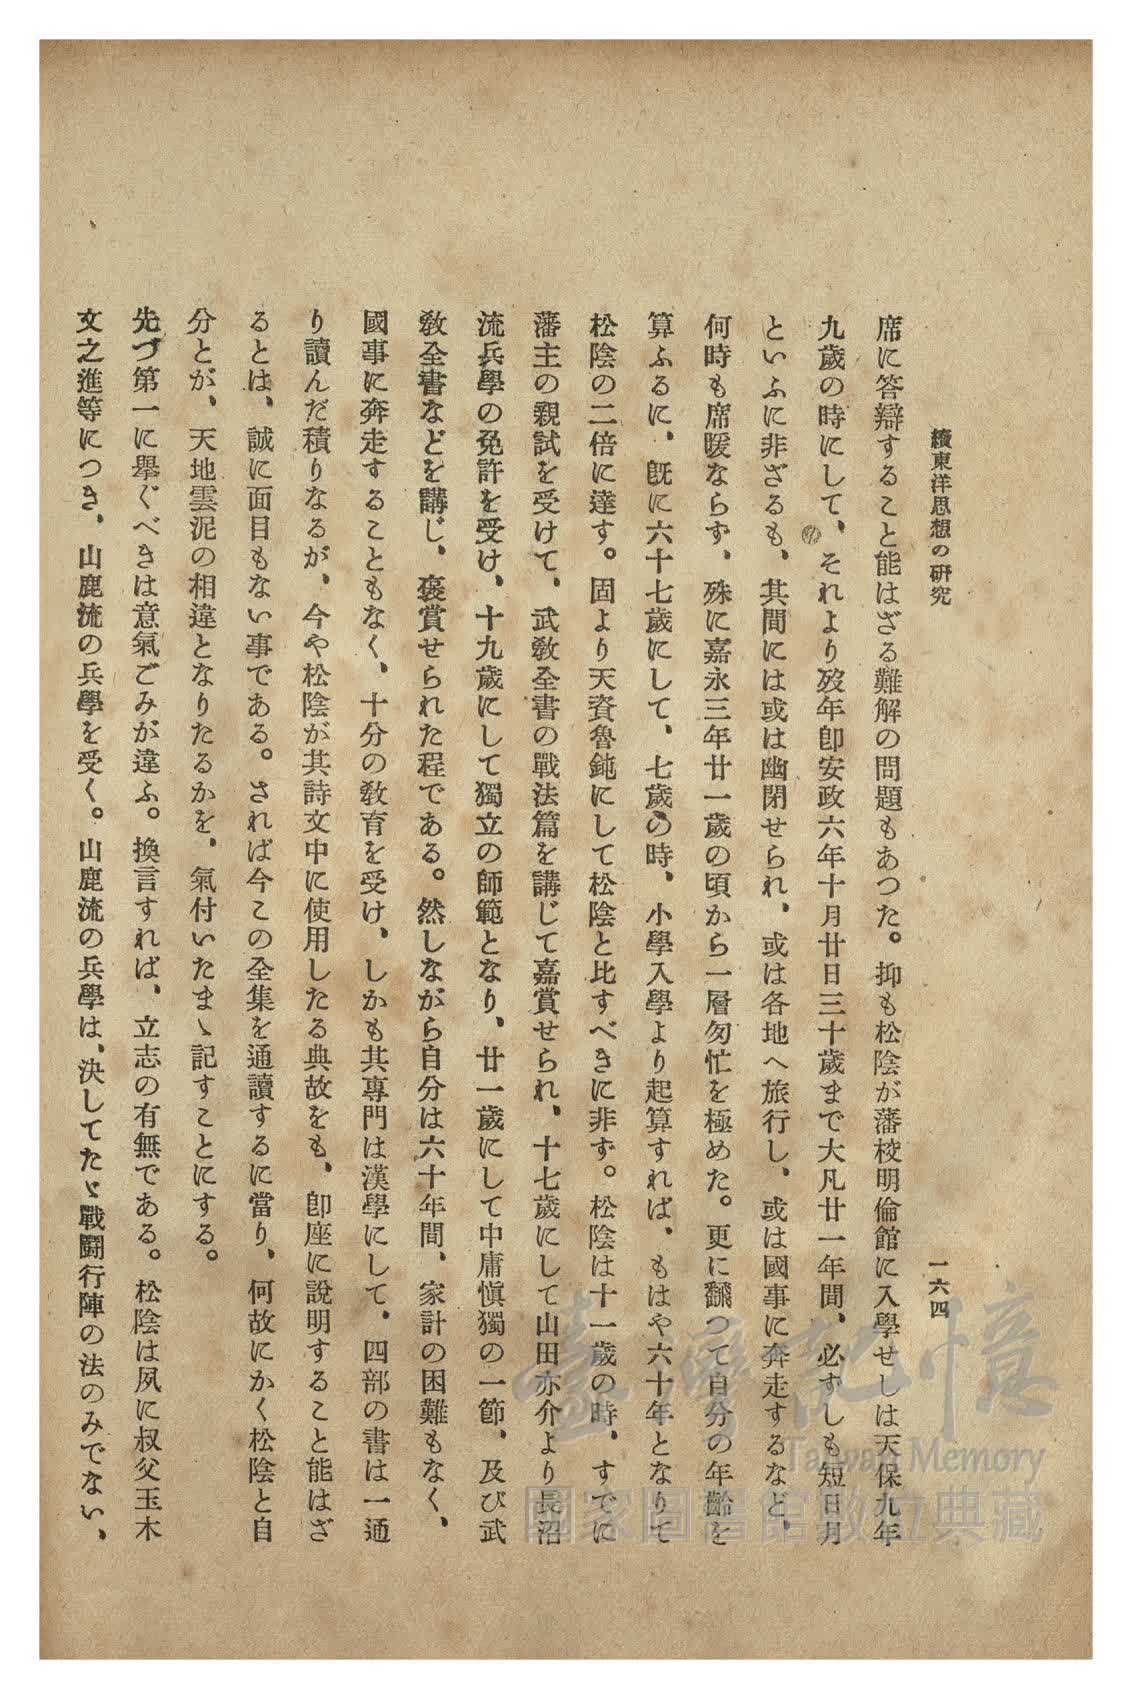 續東洋思想の研究
一六四
席に答辯すること能はざる難解の問題もあつた。抑も松陰が藩校明倫館に入學せしは天保九年
九歲の時にして、それより歿年卽安政六年十月廿日三十歲まで大凡廿一年間、必ずしも短日月
といふに非ざるも、其間には或は幽閉せられ、或は各地へ旅行し、或は國事に奔走するなど、
何時も席暖ならず、殊に嘉永三年廿一歲の頃から一層匆忙を極めた。更に飜つて自分の年齡を
算ふるに、旣に六十七歲にして、七歲の時、小學入學より起算すれば、もはや六十年となりて
松陰の二倍に達す。固より天資魯鈍にして松陰と比すべきに非ず。松陰は十一歲の時、すでに
藩主の親試を受けて、武敎全書の戰法篇を講じて嘉賞せられ、十七歲にして山田亦介より長沼
流兵學の免許を受け、十九歲にして獨立の師範となり、廿一歲にして中庸愼獨の一節、及び武
敎全書などを講じ、褒賞せられた程である。然しながら自分は六十年間、家計の困難もなく、
國事に奔走することもなく、十分の敎育を受け、しかも其專門は漢學にして、四部の書は一通
り讀んだ積りなるが、今や松陰が其詩文中に使用したる典故をも、卽座に說明すること能はざ
るとは、誠に面目もない事である。されば今この全集を通讀するに當り、何故にかく松陰と自
分とが、天地雲泥の相違となりたるかを、氣付いたまゝ記すことにする。
先づ第一に擧ぐべきは意氣ごみが違ふ。換言すれば、立志の有無である。松陰は夙に叔父玉木
文之進等につき、山鹿流の兵學を受く。山鹿流の兵學は、決してたゞ戰鬪行陣の法のみでない、
臺灣記憶
Taiwan Memory
國家圖書館數位典藏